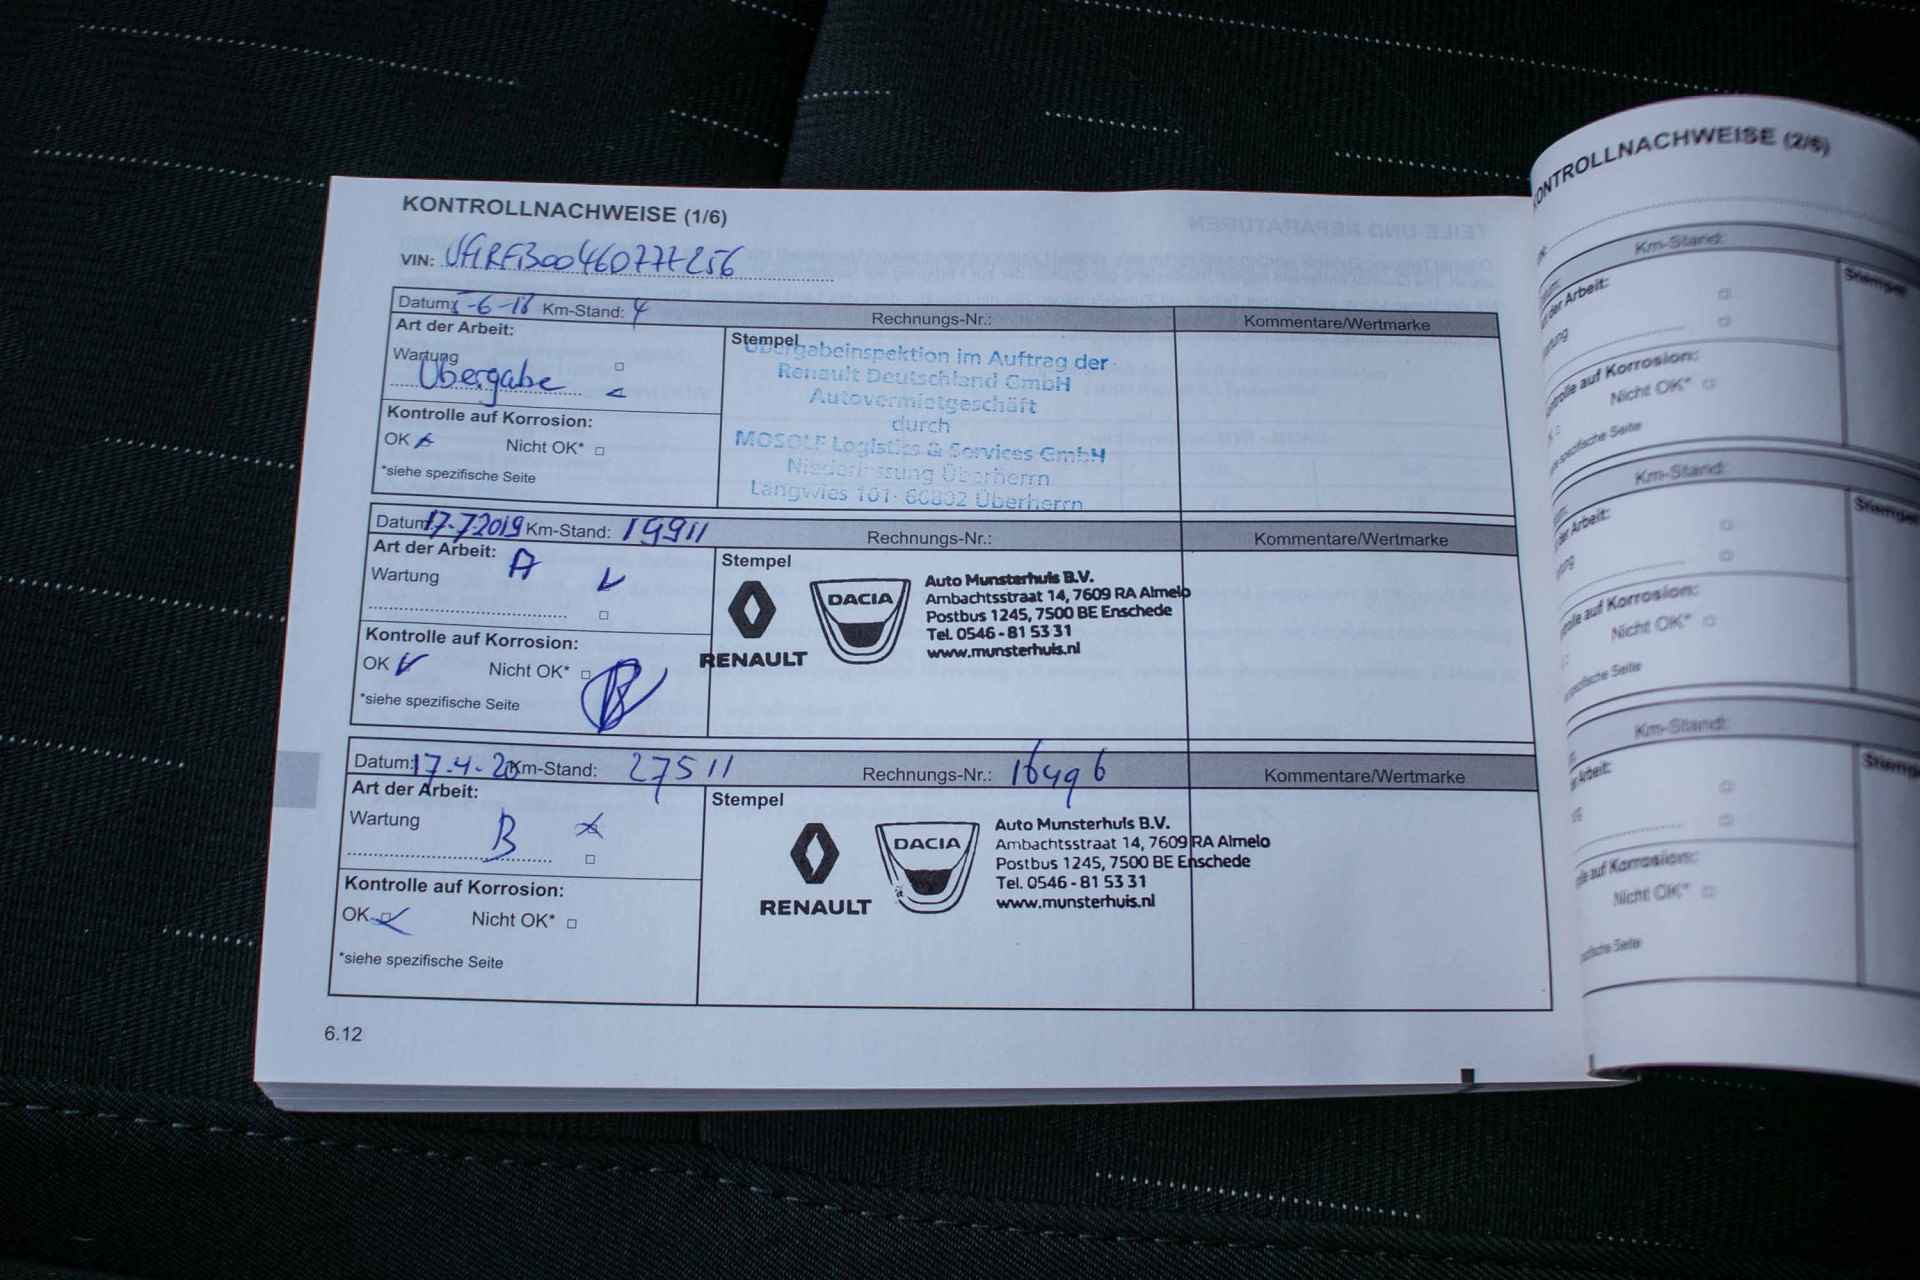 KONTROLLNACHWEISE (1/6)
VIN:
Datum: 5-6-18 Km-Stand: 4 Rechnungs-Nr.: Kommentare/Wertmarke
Art der Arbeit:
Wartung
Übergabe
Kontrolle auf Korrosion:
OK Nicht OK*
*siehe spezifische Seite
Stempel
Übergabeinspektion im Auftrag der
Renault Deutschland GmbH
Autovermietgeschäft
durch
MOSOLF Logistics & Services GmbH
Niederlassung Überherrn
Langwies 101· 66802 Überherrn
Datum: 17-7-2019 Km-Stand: 19911 Rechnungs-Nr.: Kommentare/Wertmarke
Art der Arbeit:
Wartung A
Kontrolle auf Korrosion:
OK Nicht OK*
*siehe spezifische Seite
Stempel
RENAULT
DACIA
Auto Munsterhuis B.V.
Ambachtsstraat 14, 7609 RA Almelo
Postbus 1245, 7500 BE Enschede
Tel. 0546 - 81 53 31
www.munsterhuis.nl
Datum: 17-4-20 Km-Stand: 27511 Rechnungs-Nr.: 16496 Kommentare/Wertmarke
Art der Arbeit:
Wartung B
Kontrolle auf Korrosion:
OK Nicht OK*
*siehe spezifische Seite
Stempel
RENAULT
DACIA
Auto Munsterhuis B.V.
Ambachtsstraat 14, 7609 RA Almelo
Postbus 1245, 7500 BE Enschede
Tel. 0546 - 81 53 31
www.munsterhuis.nl
6.12
KONTROLLNACHWEISE (2/6)
Km-Stand:
der Arbeit:
Stempel
auf Korrosion:
Nicht OK*
spezifische Seite
Km-Stand:
der Arbeit:
Stempel
auf Korrosion:
Nicht OK*
spezifische Seite
Km-Stand:
Arbeit:
auf Korrosion:
Nicht OK*
Seite